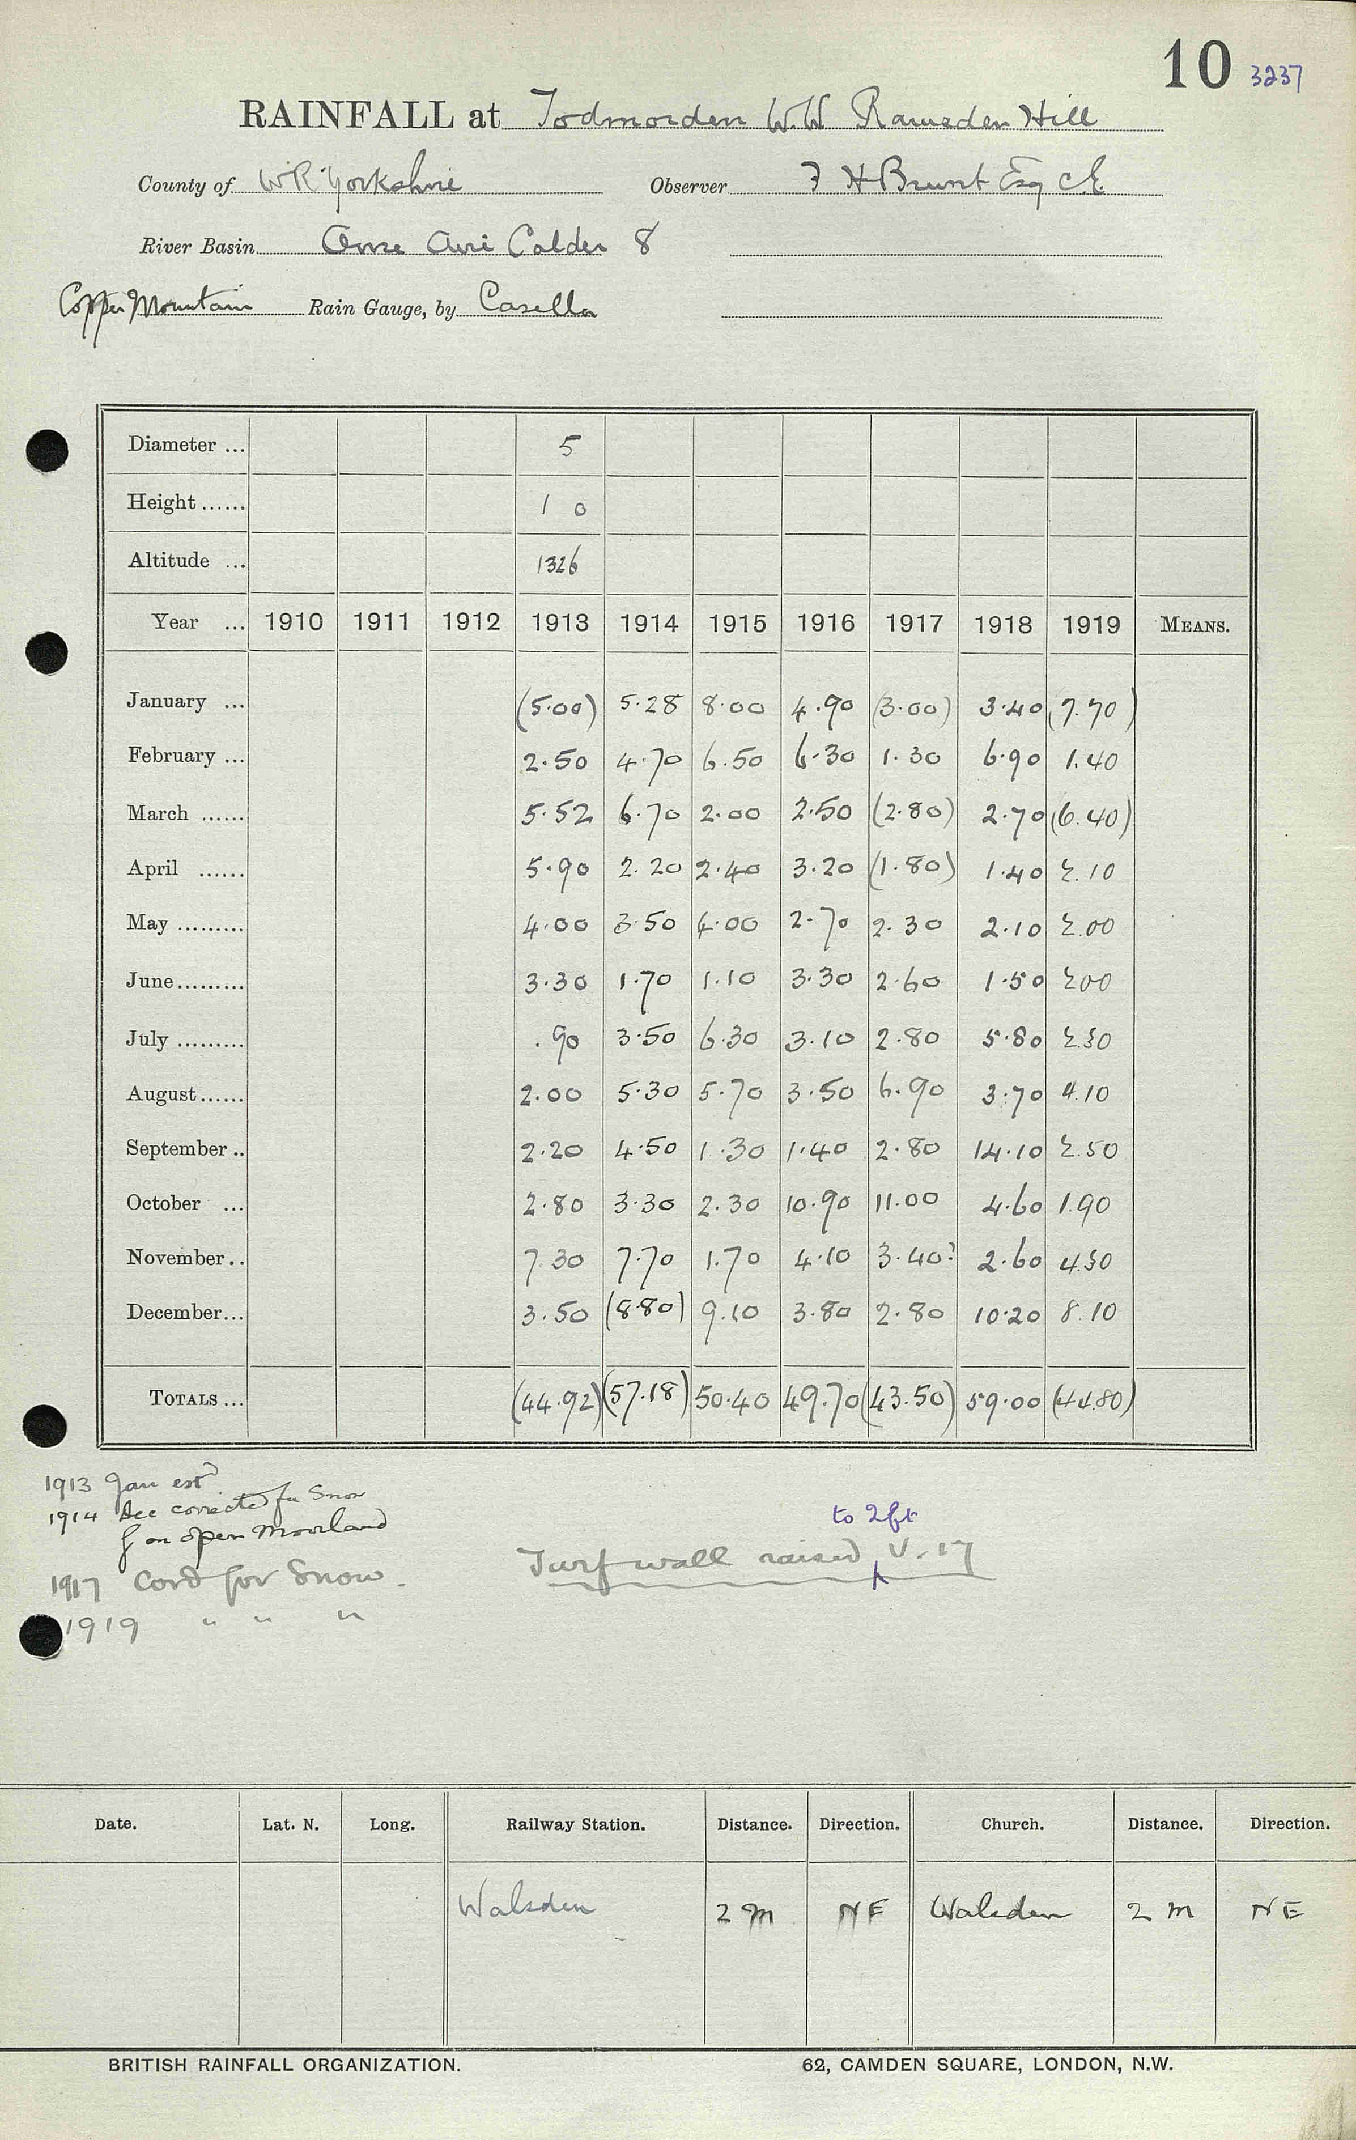 10 3237
RAINFALL at Todmorden W.W Ramsden Hill
County of WR Yorkshire Observer F H Brunt Esq C.E.
River Basin Ouse Aire Calder 8
Copper Mountain Rain Gauge, by Casella
Diameter ... 5
Height ...... 1 0
Altitude ... 1326
Year ... 1910 1911 1912 1913 1914 1915 1916 1917 1918 1919 MEANS.
January ... (5.00) 5.28 8.00 4.90 (3.00) 3.40 (7.70)
February ... 2.50 4.70 6.50 6.30 1.30 6.90 1.40
March ...... 5.52 6.70 2.00 2.50 (2.80) 2.70 (6.40)
April ...... 5.90 2.20 2.40 3.20 (1.80) 1.40 2.10
May ......... 4.00 3.50 4.00 2.70 2.30 2.10 2.00
June......... 3.30 1.70 1.10 3.30 2.60 1.50 2.00
July ......... .90 3.50 6.30 3.10 2.80 5.80 2.30
August...... 2.00 5.30 5.70 3.50 6.90 3.70 4.10
September .. 2.20 4.50 1.30 1.40 2.80 14.10 2.50
October ... 2.80 3.30 2.30 10.90 11.00 4.60 1.90
November.. 7.30 7.70 1.70 4.10 3.40? 2.60 4.30
December... 3.50 (8.80) 9.10 3.80 2.80 10.20 8.10
TOTALS ... (44.92) (57.18) 50.40 49.70 (43.50) 59.00 (44.80)
1913 Jan estd
1914 Dec corrected for Snow
& on open Moorland
to 2ft
Turf wall raised V.17
1917 Cord for Snow.
1919 " " "
Date. Lat. N. Long. Railway Station. Distance. Direction. Church. Distance. Direction.
Walsden 2 m NE Walsden 2 m NE
BRITISH RAINFALL ORGANIZATION. 62, CAMDEN SQUARE, LONDON, N.W.